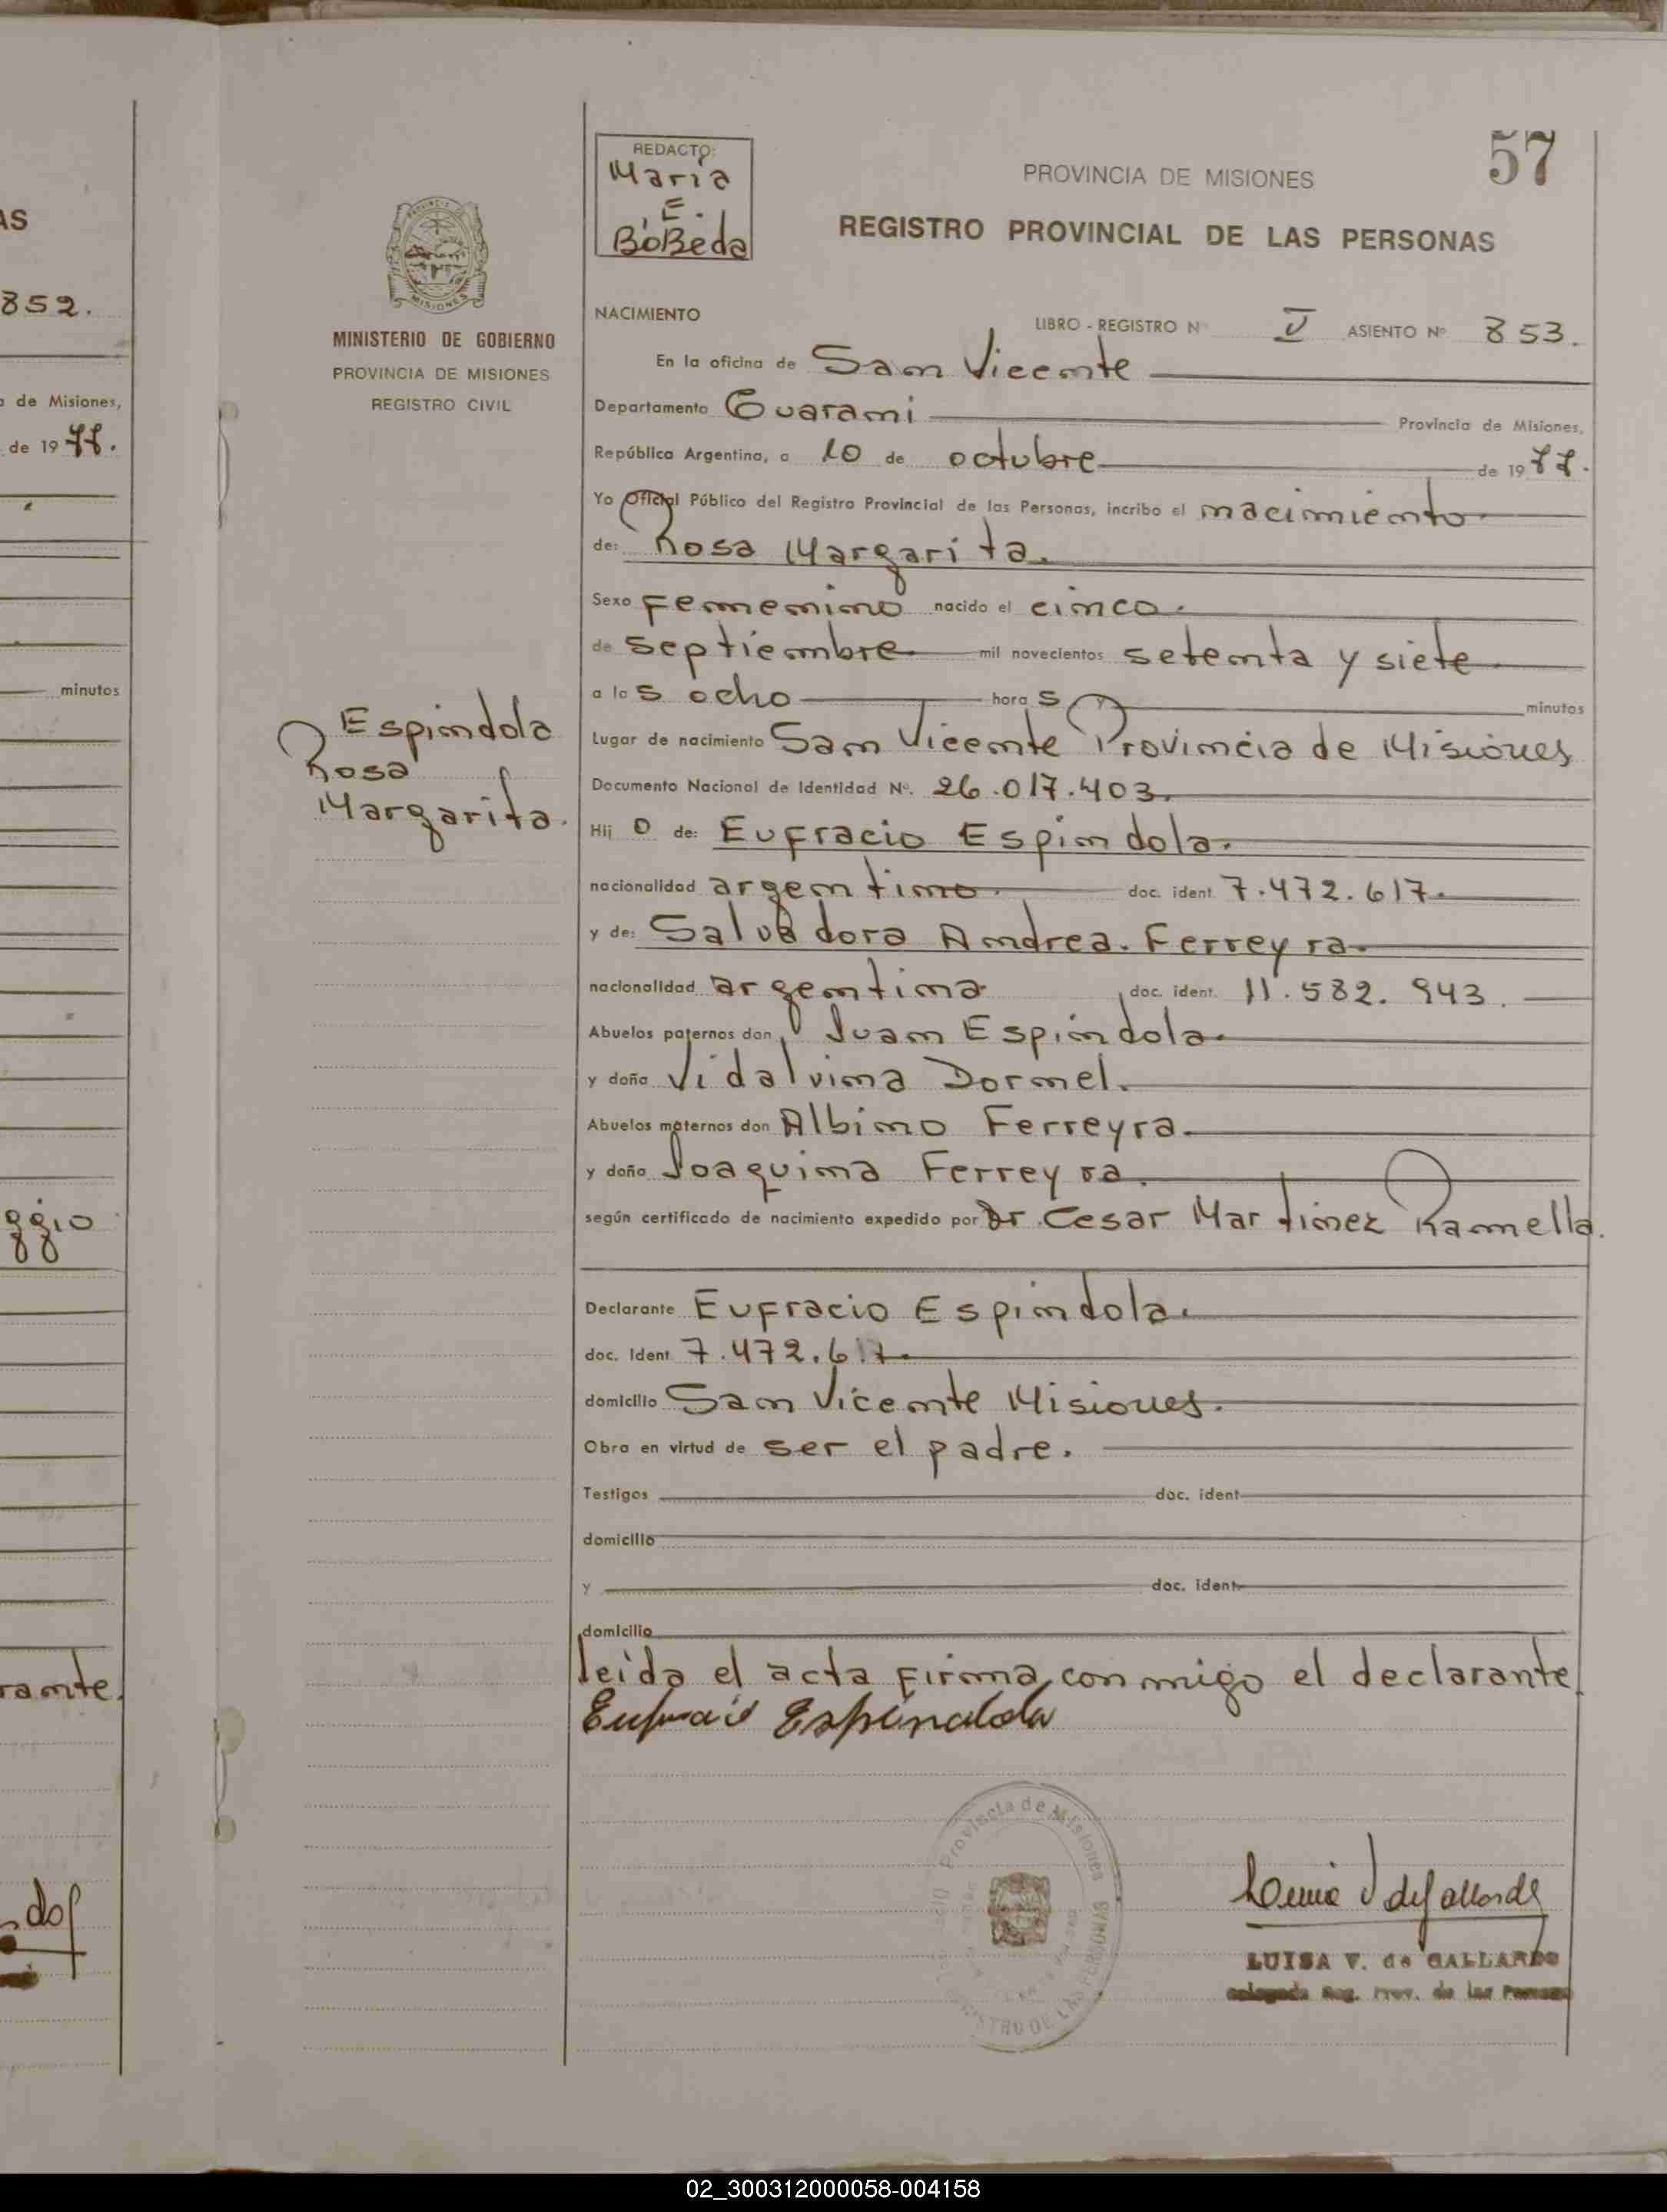 AS
852.
a de Misiones,
de 1977.
minutos
ggio
rante.
MINISTERIO DE GOBIERNO
PROVINCIA DE MISIONES
REGISTRO CIVIL
Espindola
Rosa
Margarita.
REDACTO:
Maria
E.
BoBeda
57
PROVINCIA DE MISIONES
REGISTRO PROVINCIAL DE LAS PERSONAS
NACIMIENTO
LIBRO - REGISTRO Nº V ASIENTO Nº 853.
En la oficina de San Vicente
Departamento Guarani Provincia de Misiones,
República Argentina, a 10 de octubre de 1977.
Yo Oficial Público del Registro Provincial de las Personas, incribo el nacimiento
de: Rosa Margarita.
Sexo Femenino nacido el cinco.
de septiembre mil novecientos setenta y siete
a las ocho horas y minutos
Lugar de nacimiento San Vicente Provincia de Misiones
Documento Nacional de Identidad Nº. 26.017.403.
Hijo de: Eufracio Espindola.
nacionalidad argentino. doc. ident. 7.472.617.
y de: Salvadora Andrea. Ferreyra.
nacionalidad argentina doc. ident. 11.582.943.
Abuelos paternos don Juan Espindola.
y doña Vidalvina Dornel.
Abuelos maternos don Albino Ferreyra.
y doña Joaquina Ferreyra.
según certificado de nacimiento expedido por Dr. Cesar Martinez Ramella.
Declarante Eufracio Espindola.
doc. Ident 7.472.617.
domicilio San Vicente Misiones.
Obra en virtud de ser el padre.
Testigos doc. ident
domicilio
y doc. ident
domicilio
leida el acta firma, conmigo el declarante
Espindola
Provincia de Misiones
REGISTRO DE LAS PERSONAS
LUISA V. de GALLARDO
Delegada Reg. Prov. de las Personas
02_300312000058-004158